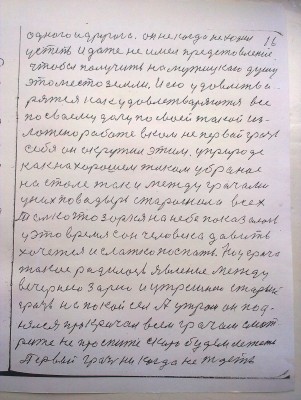 одного и другого. он не когда не хотел 16
учсть и даже не имел представление
чтобы получить на мужицкаю душу
это место земли. И его удовлетво
рятся как удовлетваряются все
по своему долгу по своей такой
работе в ком не первый грачь
себя он окружил этим. у природе
как на хорошем таком убраное
на столе так и между грачами
уних поводырь старшина всех
только то зоря на небе показалась
у это время сон человека давить
хочется и слатко поспать. Но у серого
такое радилось явленье между
вечернего зарио и утренною старый
грачь на покой сел А утром он под-
нялся прокричал всем грачам смот
рите не проспите скоро будем летать
Первый грачь никогда не ждеть